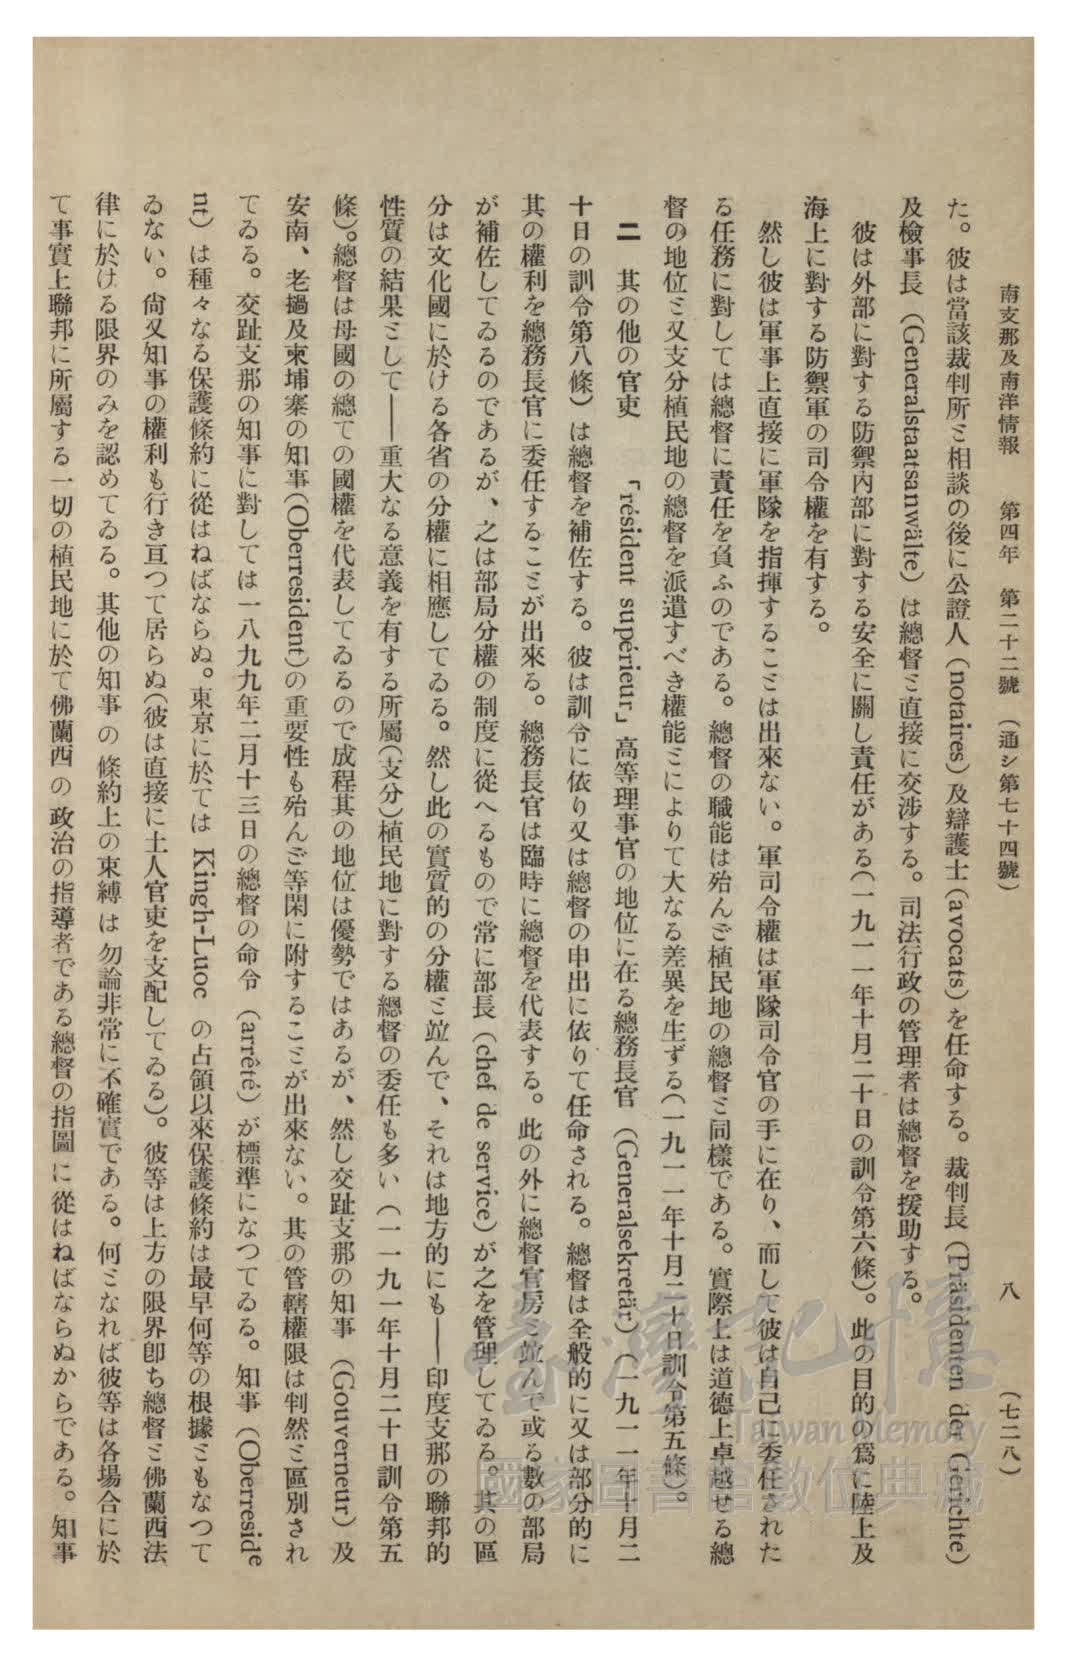 南支那及南洋情報 第四年 第二十二號 (通シ第七十四號) 八 (七二八)
た。彼は當該裁判所と相談の後に公證人(notaires)及辯護士(avocats)を任命する。裁判長(Präsidenten der Gerichte)
及檢事長(Generalstaatsanwälte)は總督と直接に交渉する。司法行政の管理者は總督を援助する。
彼は外部に對する防禦內部に對する安全に關し責任がある(一九一一年十月二十日の訓令第六條)。此の目的の爲に陸上及
海上に對する防禦軍の司令權を有する。
然し彼は軍事上直接に軍隊を指揮することは出來ない。軍司令權は軍隊司令官の手に在り、而して彼は自己に委任された
る任務に對しては總督に責任を負ふのである。總督の職能は殆んど植民地の總督と同樣である。實際上は道德上卓越せる總
督の地位と又支分植民地の總督を派遣すべき權能とによりて大なる差異を生ずる(一九一一年十月二十日訓令第五條)。
二 其の他の官吏 「résident supérieur」高等理事官の地位に在る總務長官(Generalsekretär)(一九一一年十月二
十日の訓令第八條)は總督を補佐する。彼は訓令に依り又は總督の申出に依りて任命される。總督は全般的に又は部分的に
其の權利を總務長官に委任することが出來る。總務長官は臨時に總督を代表する。此の外に總督官房と竝んで或る數の部局
が補佐してゐるのであるが、之は部局分權の制度に從へるもので常に部長(chef de service)が之を管理してゐる。其の區
分は文化國に於ける各省の分權に相應してゐる。然し此の實質的の分權と竝んで、それは地方的にも――印度支那の聯邦的
性質の結果として――重大なる意義を有する所屬(支分)植民地に對する總督の委任も多い(一一九一年十月二十日訓令第五
條)。總督は母國の總ての國權を代表してゐるので成程其の地位は優勢ではあるが、然し交趾支那の知事(Gouverneur)及
安南、老撾及柬埔寨の知事(Oberresident)の重要性も殆んど等閑に附することが出來ない。其の管轄權限は判然と區別され
てゐる。交趾支那の知事に對しては一八九九年二月十三日の總督の命令(arrêté)が標準になつてゐる。知事(Oberreside
nt)は種々なる保護條約に從はねばならぬ。東京に於ては Kingh-Luoc の占領以來保護條約は最早何等の根據ともなつて
ゐない。尙又知事の權利も行き亙つて居らぬ(彼は直接に土人官吏を支配してゐる)。彼等は上方の限界卽ち總督と佛蘭西法
律に於ける限界のみを認めてゐる。其他の知事の條約上の束縛は勿論非常に不確實である。何となれば彼等は各場合に於
て事實上聯邦に所屬する一切の植民地に於て佛蘭西の政治の指導者である總督の指圖に從はねばならぬからである。知事
臺灣記憶
Taiwan Memory
國家圖書館數位典藏